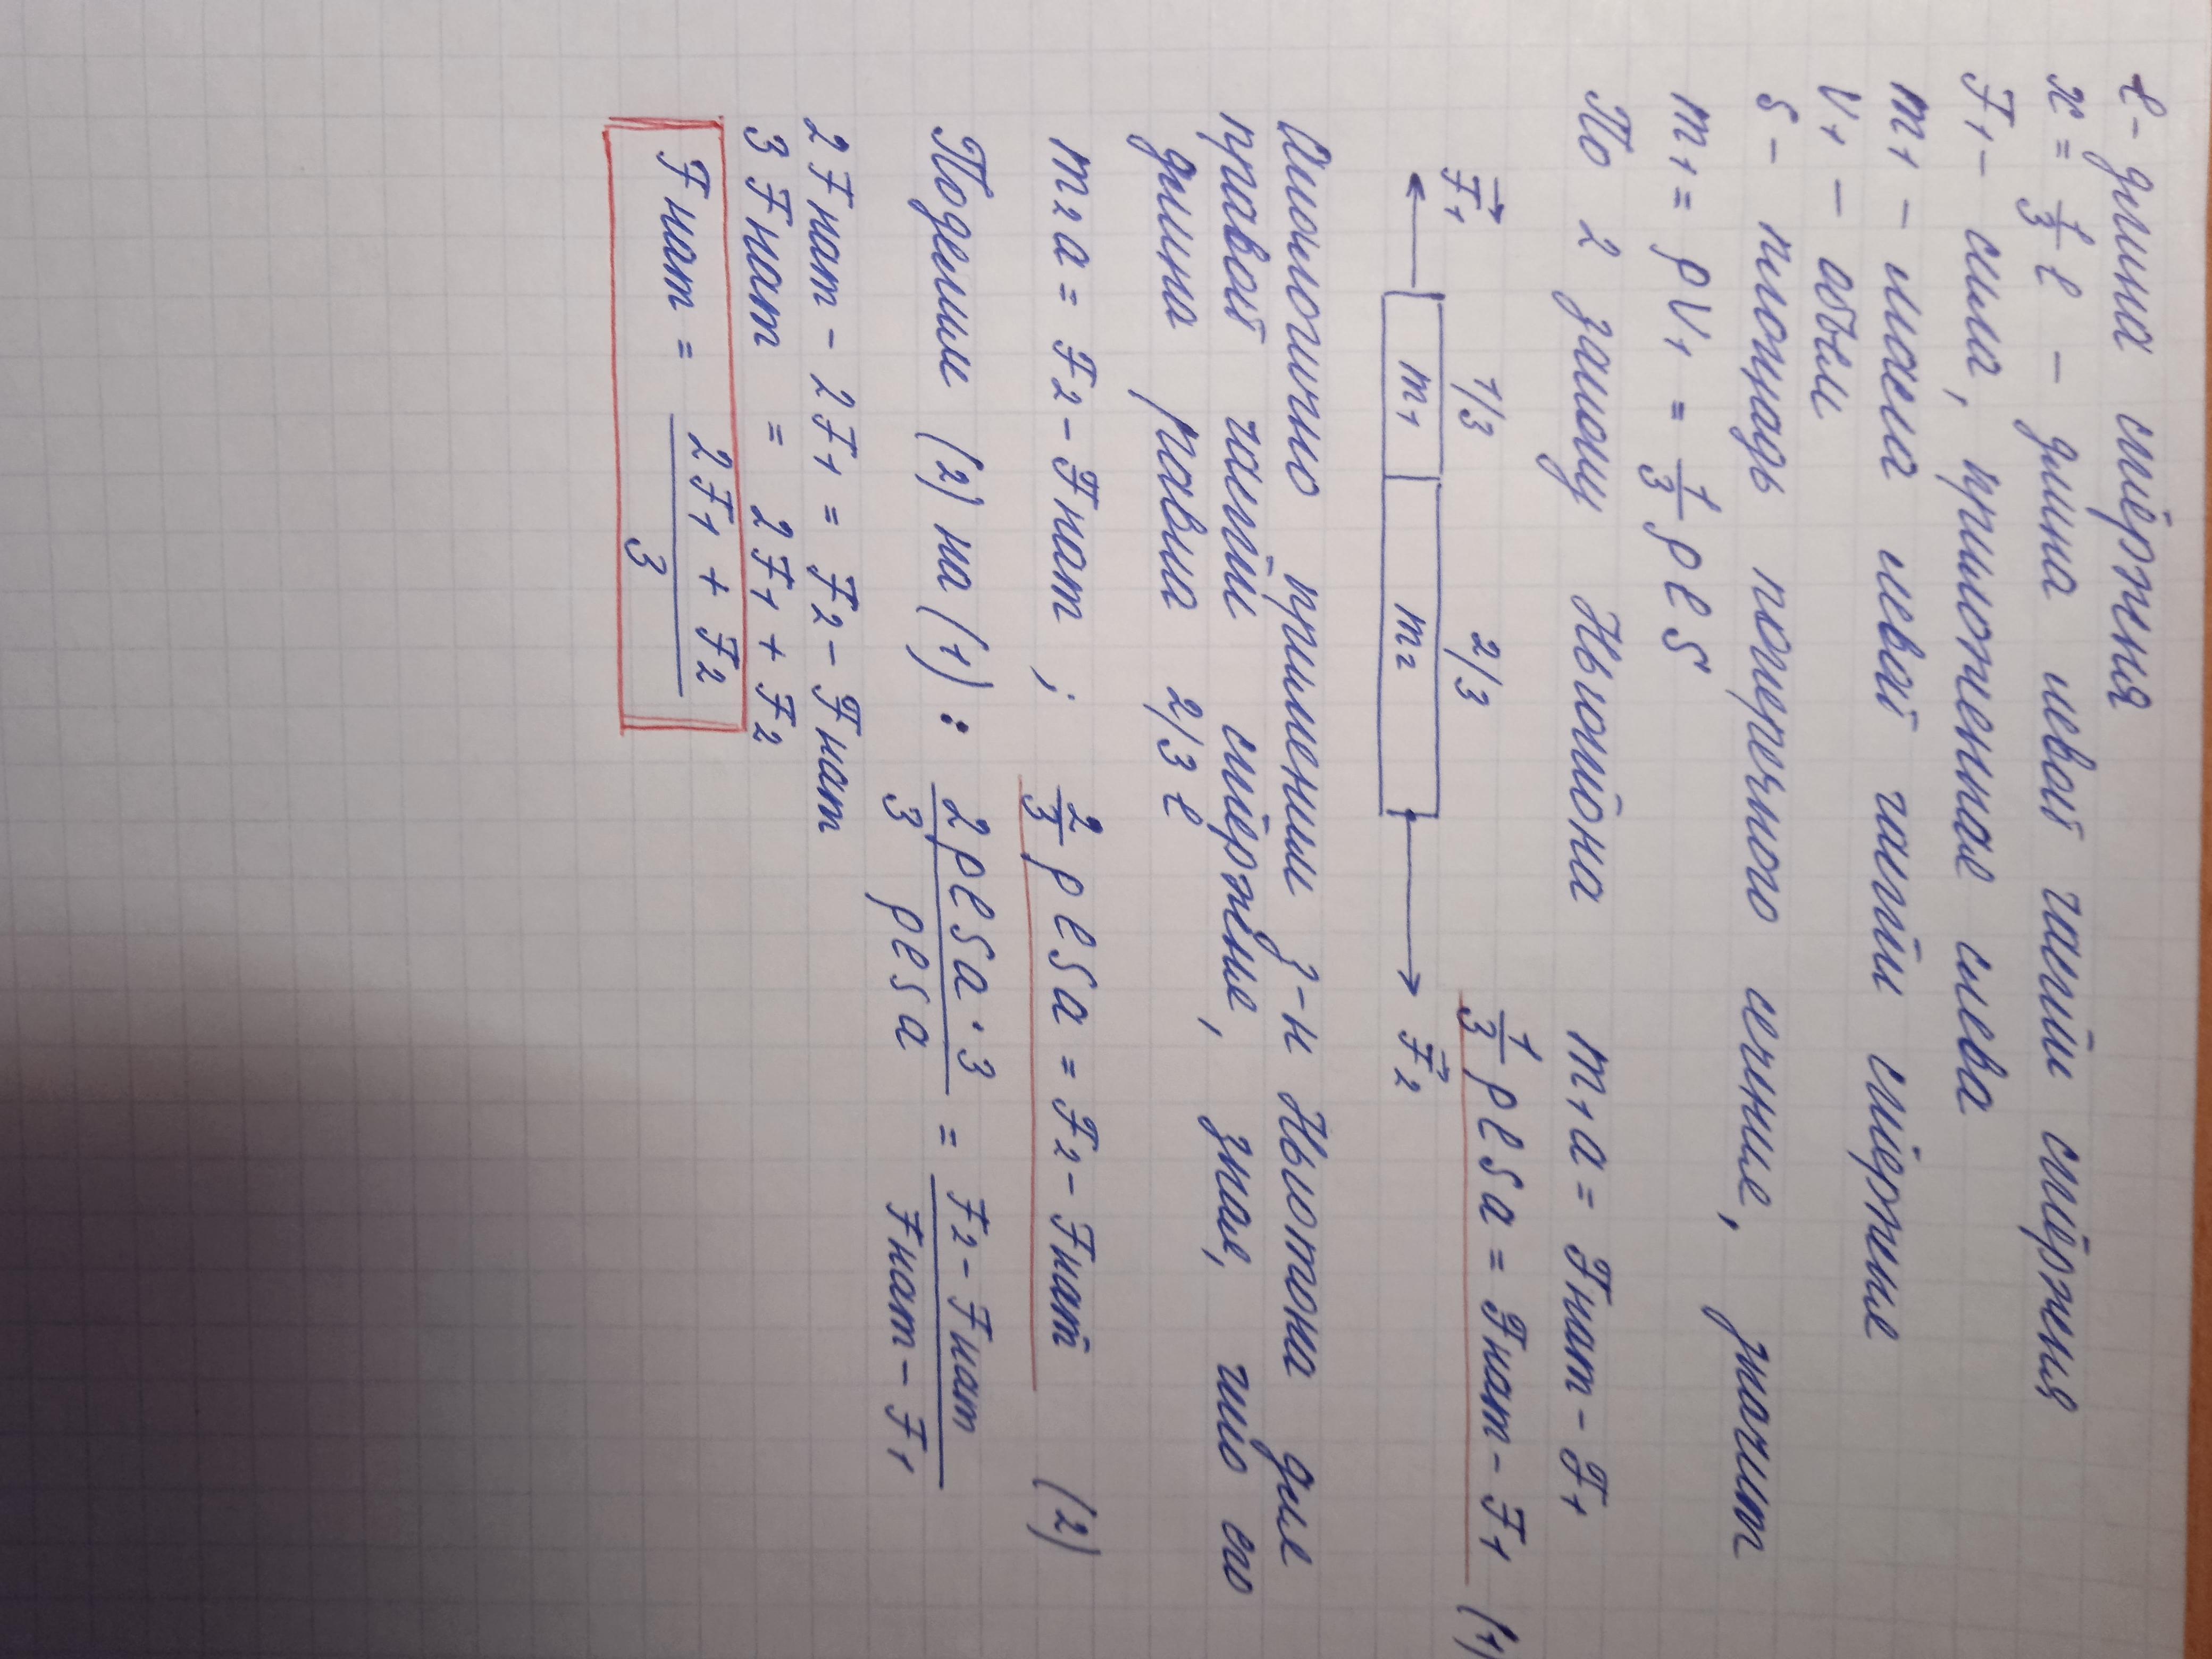 ℓ - длина стержня
x = 1/3 ℓ - длина левой части стержня
F1 - сила, приложенная слева
m1 - масса левой части стержня
V1 - объем
S - площадь поперечного сечения, значит
m1 = ρV1 = 1/3 ρℓS
По 2 закону Ньютона m1a = Fнат - F1
1/3 ρℓSa = Fнат - F1 (1)
1/3 2/3
F1 m1 m2 F2
Аналогично применим з-н Ньютона для
правой части стержня, зная, что его
длина равна 2/3 ℓ
m2a = F2 - Fнат ; 2/3 ρℓSa = F2 - Fнат (2)
Поделим (2) на (1) : 2ρℓSa·3 / 3 ρℓSa = F2 - Fнат / Fнат - F1
2Fнат - 2F1 = F2 - Fнат
3Fнат = 2F1 + F2
Fнат = 2F1 + F2 / 3